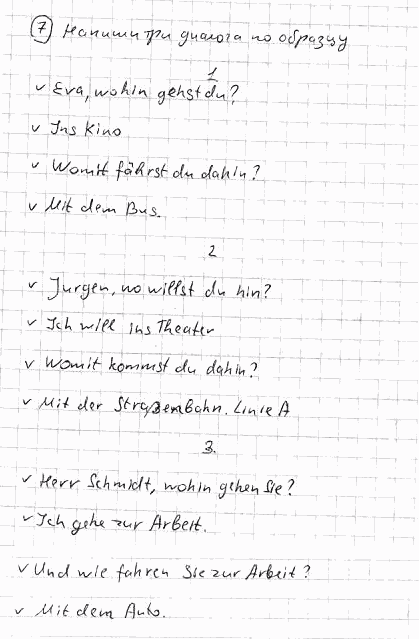 7 Напиши три диалога по образцу
1
✓ Eva, wohin gehst du?
✓ Ins Kino
✓ Womit fährst du dahin?
✓ Mit dem Bus.
2
✓ Jurgen, wo willst du hin?
✓ Ich will ins Theater
✓ Womit kommst du dahin?
✓ Mit der Straßenbahn. Linie A
3.
✓ Herr Schmidt, wohin gehen Sie?
✓ Ich gehe zur Arbeit.
✓ Und wie fahren Sie zur Arbeit?
✓ Mit dem Auto.